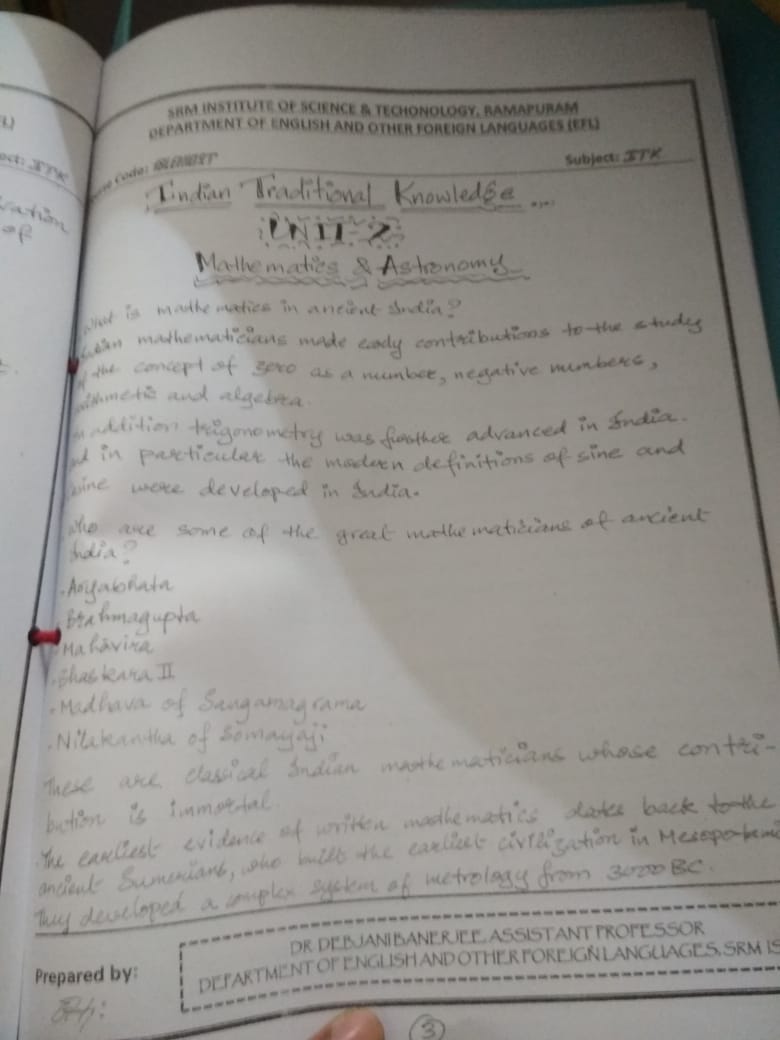 L)
ect: ITK
vation
of
SRM INSTITUTE OF SCIENCE & TECHONOLOGY, RAMAPURAM
DEPARTMENT OF ENGLISH AND OTHER FOREIGN LANGUAGES (EFL)
Code: Subject: ITK
Indian Traditional Knowledge ...
UNIT-2
Mathematics & Astronomy
What is mathematics in ancient India?
Indian mathematicians made early contributions to the study
of the concept of zero as a number, negative numbers,
arithmetic and algebra.
In addition trigonometry was further advanced in India.
and in particular the modern definitions of sine and
cosine were developed in India.
Who are some of the great mathematicians of ancient
India?
. Aryabhata
. Brahmagupta
. Mahāvira
. Bhaskara II
. Madhava of Sangamagrama
. Nilakantha of Somayaji
These are classical Indian mathematicians whose contri-
bution is immortal.
The earliest evidence of written mathematics dates back to the
ancient Sumerians, who built the earliest civilization in Mesopotami
They developed a complex system of metrology from 3000 BC.
Prepared by:
DR DEBJANI BANERJEE, ASSISTANT PROFESSOR
DEPARTMENT OF ENGLISH AND OTHER FOREIGN LANGUAGES, SRM IS
3